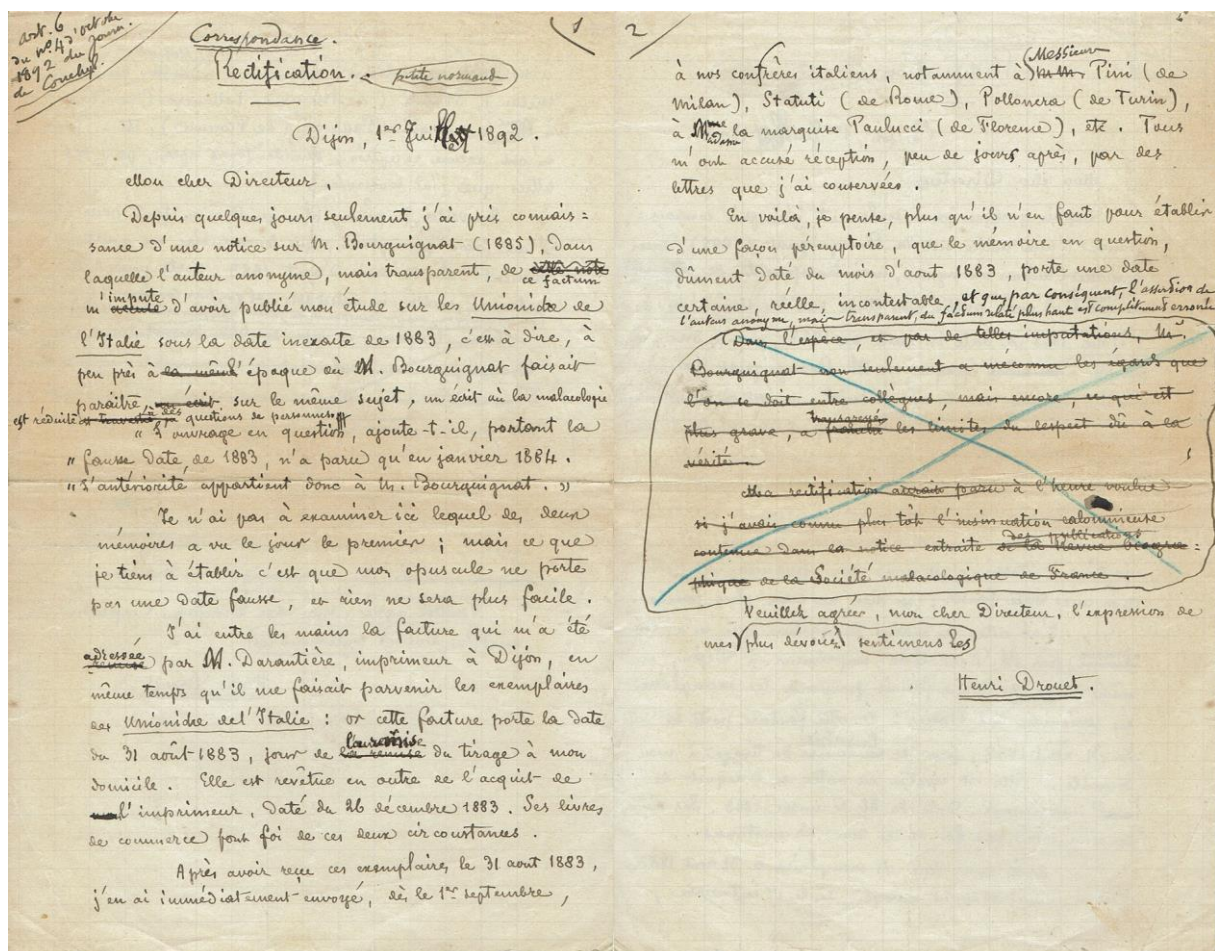 art. 6
du nº 4 d'octobre
1892 du Journ.
de Conchyl.
Correspondance.
Rectification.
petite normande
1
Dijon, 1er Juillet 1892.
Mon cher Directeur.
Depuis quelques jours seulement j'ai pris connais=
sance d'une notice sur M. Bourguignat (1885), dans
laquelle l'auteur anonyme, mais transparent, de cette note
ce factum
impute
m'accuse d'avoir publié mon étude sur les Unionidæ de
l'Italie sous la date inexacte de 1883, c'est à dire, à
peu près à la même l'époque où M. Bourguignat faisait
paraître, un écrit sur le même sujet, un écrit où la malacologie
est réduite à des questions de personnes
"L'ouvrage en question, ajoute-t-il, portant la
"fausse date de 1883, n'a paru qu'en janvier 1884.
"L'antériorité appartient donc à M. Bourguignat."
Je n'ai pas à examiner ici lequel des deux
mémoires a vu le jour le premier ; mais ce que
je tiens à établir c'est que mon opuscule ne porte
pas une date fausse, et rien ne sera plus facile.
J'ai entre les mains la facture qui m'a été
adressée
remise par M. Darantière, imprimeur à Dijon, en
même temps qu'il me faisait parvenir les exemplaires
des Unionidæ de l'Italie : or cette facture porte la date
du 31 août 1883, jour de la remise du tirage à mon
domicile. Elle est revêtue en outre de l'acquit de
l'imprimeur, daté du 26 décembre 1883. Ses livres
de commerce font foi de ces deux circonstances.
Après avoir reçu ces exemplaires le 31 aout 1883,
j'en ai immédiatement envoyé, dès le 1er septembre,
2
Messieurs
à nos confrères italiens, notamment à MM. Pini (de
Milan), Statuti (de Rome), Pollonera (de Turin),
à Madame la marquise Paulucci (de Florence), etc. Tous
m'ont accusé réception, peu de jours après, par des
lettres que j'ai conservées.
En voilà, je pense, plus qu'il n'en faut pour établir
d'une façon péremptoire, que le mémoire en question,
dûment daté du mois d'aout 1883, porte une date
certaine, réelle, incontestable, et que, par conséquent, l'assertion de
l'auteur anonyme, mais transparent, du factum relaté plus haut est complètement erronée
Dans l'espèce, et par de telles imputations, M.
Bourguignat non seulement a méconnu les égards que
l'on se doit entre collègues, mais encore, ce qui est
transgressé
plus grave, a franchi les limites du respect dû à la
vérité.
Ma rectification aurait paru à l'heure voulue
si j'avais connu plus tôt l'insinuation calomnieuse
des publications
contenue dans la notice extraite de la Revue biogra=
phique de la Société malacologique de France.
Veuillez agréer, mon cher Directeur, l'expression de
mes plus dévoués sentimens les
Henri Drouet.